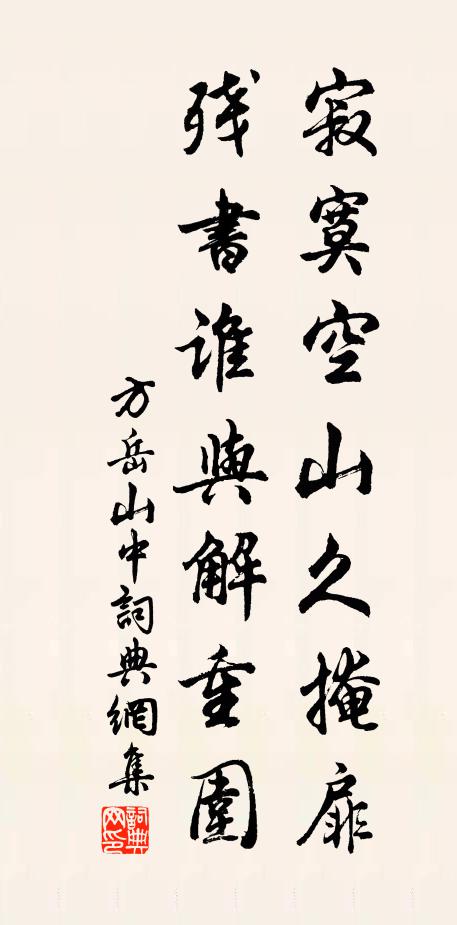 寂寞空山久掩扉
残書誰與解重圍
方岳山中詞典網集
詞典网印